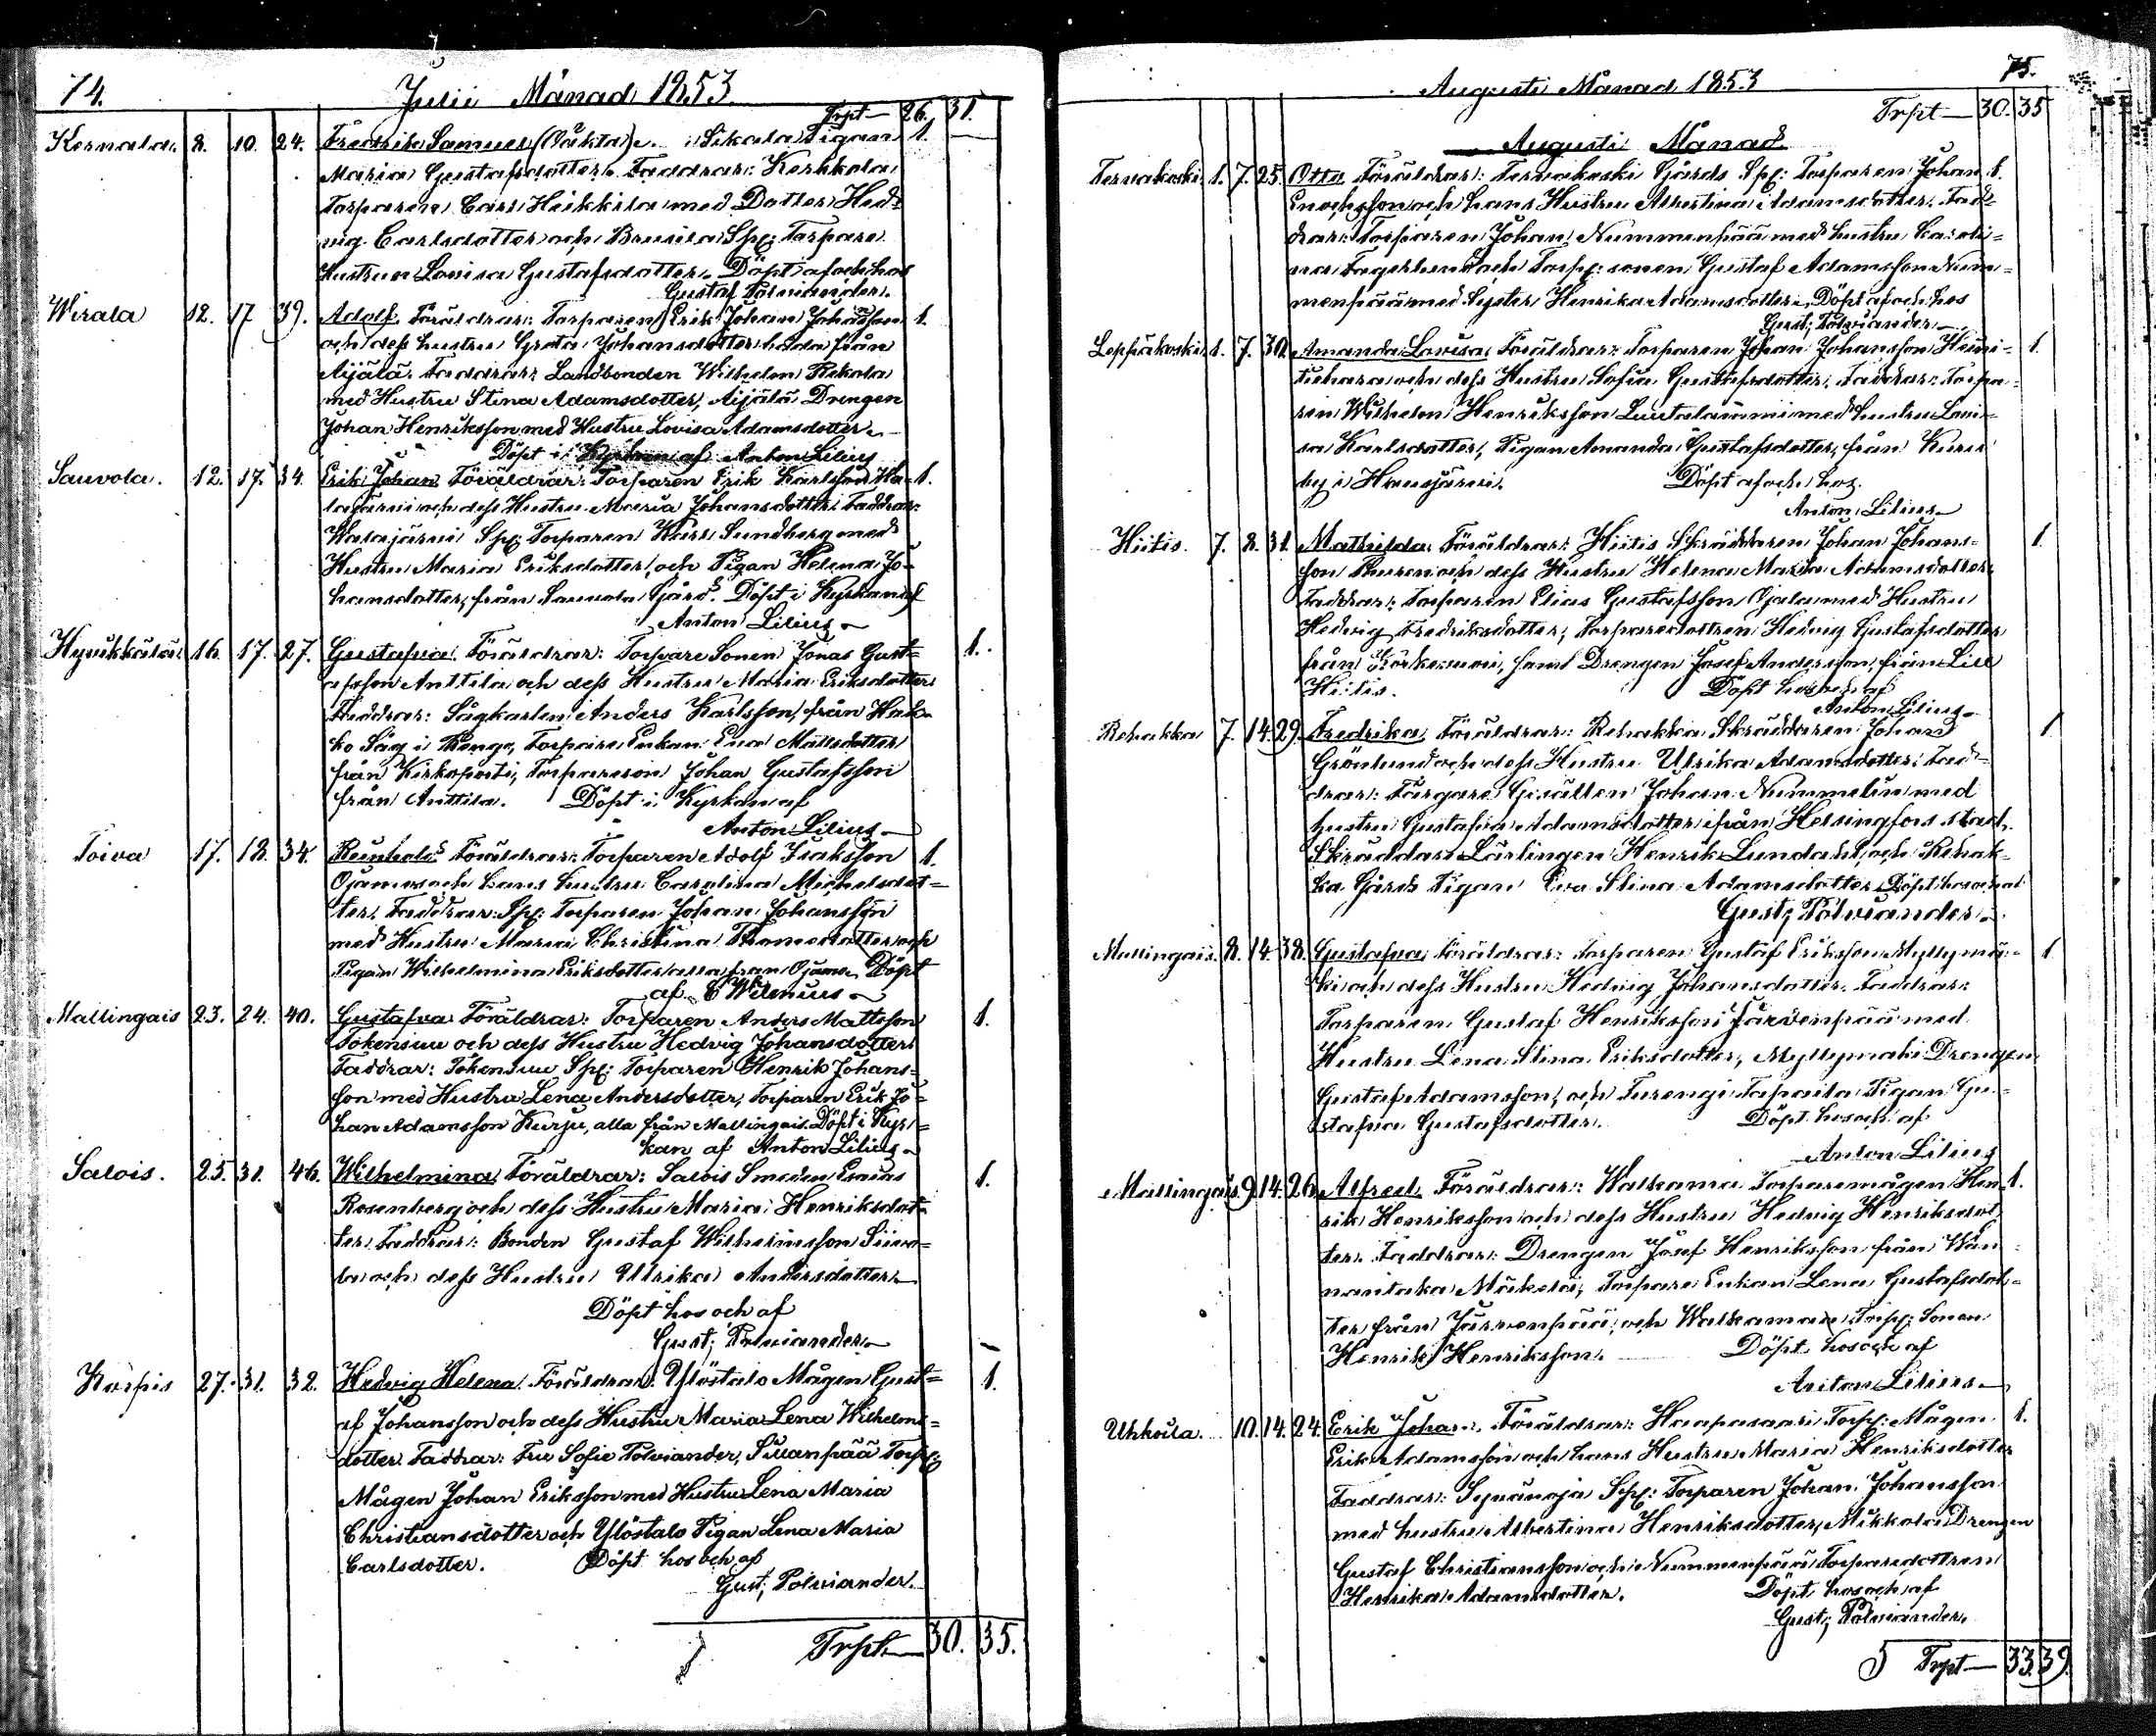 74.
Julii Månad 1853.
Trpt — 26. 31.
Kernala. 8. 10. 24. Fredrik Samuel (Oäkta). Sikala Pigan 1.
Maria Gustafsdotter. Faddrar: Kerkkola
Torparen Carl Heikkila med Dotter Hed-
vig Carlsdotter och Brusila Spf: Torpare
Hustrun Lovisa Gustafsdotter. Döpt af och hos
Gustaf Polviander.
Wirala 12. 17 39. Adolf. Föräldrar: Torparen Erik Johan Johansson 1.
och dess hustru Greta Johansdotter från
Aijälä. Faddrar: Landbonden Wilhelm
med Hustru Stina Adamsdotter, Aijälä Drengen
Johan Henriksson med Hustru Lovisa Adamsdotter.
Döpt i Kyrkan af Anton Lilius
Sauvola. 12. 17. 34. Erik Johan Föräldrar: Torparen Erik Karlsson Wa- 1.
lajärvi och dess Hustru Maria Johansdotter. Faddrar:
Walajärvi Spf: Torparen Karl Sundberg med
Hustru Maria Eriksdotter, och Pigan Helena Jo-
hansdotter, från Sauvola Gård. Döpt i Kyrkan af
Anton Lilius
Hyvikkälä 16. 17. 27. Gustafva. Föräldrar: Torpare Sonen Jonas Gust- 1.
afsson Anttila och dess Hustru Maria Eriksdotter
Faddrar: Sågkarlen Anders Karlsson, från Hak-
ko Såg i Renge, Torpare Enkan Eva Mattsdotter
från Kirkoporti, Torpareson Johan Gustafsson
från Anttila. Döpt i Kyrkan af
Anton Lilius
Toiva 17. 18. 34. Reinhold Föräldrar: Torparen Adolf Isaksson 1.
Ojamo och hans hustru Carolina Michelsdot-
ter, Faddrar: Spf: Torparen Johan Johansson
med Hustru Maria Christina Thomasdotter och
Pigan Wilhelmina Eriksdotter alla från Ojamo. Döpt
af C Wilenius
Mallingais 23. 24. 40. Gustafva Föräldrar: Torparen Anders Mattsson 1.
Tokensuu och dess Hustru Hedvig Johansdotter
Faddrar: Tokensuu Spf: Torparen Henrik Johans-
son med Hustru Lena Andersdotter, Torparen Erik Jo-
han Adamsson Kurju, alla från Mallingais. Döpt i Kyr-
kan af Anton Lilius
Salois. 25. 31. 46. Wilhelmina Föräldrar: Salois Smeden Esaias 1.
Rosenberg och dess Hustru Maria Henriksdot-
ter, Faddrar: Bonden Gustaf Wilhelmsson Siivo-
la och dess Hustru Ulrika Andersdotter
Döpt hos och af
Gust; Polviander
Korpis 27. 31. 32. Hedvig Helena Föräldrar: Ylöstalo Mågen Gust- 1.
af Johansson och dess Hustru Maria Lena Wilhelms-
dotter. Faddrar: Fru Sofie Polviander, Sillanpää Torp:
Mågen Johan Eriksson med Hustru Lena Maria
Christiansdotter och Ylöstalo Pigan Lena Maria
Carlsdotter. Döpt hos och af
Gust; Polviander.
Trpt — 30. 35.
75.
Augusti Månad 1853
Trpt — 30. 35
Augusti Månad
Tervakoski 1. 7. 25. Otto Föräldrar: Tervakoski Gårds Spf: Torparen Johan 1.
Enochsson och hans Hustru Albertina Adamsdotter. Fad-
drar: Torparen Johan Nummenpää med hustru Caroli-
na Fagerlund och Torp: sonen Gustaf Adamsson Num-
menpää med Syster Henrika Adamsdotter. Döpt af och hos
Gust; Polviander
Leppäkoski 1. 7. 30. Amanda Lovisa Föräldrar: Torparen Johan Johansson 1.
och dess Hustru Sofia Gustafsdotter, Faddrar: Torpa-
ren Wilhelm Henriksson Luutalammi med hustru Lovi-
sa Karlsdotter, Pigan Amanda Gustafsdotter, från Kuru
by i Hausjärvi. Döpt af och hos
Anton Lilius
Hiitis. 7. 8. 31. Mathilda Föräldrar: Hiitis Skräddaren Johan Johans- 1.
son och dess Hustru Helena Maria Adamsdotter
Faddrar: Torparen Elias Gustafsson Ojala med Hustru
Hedvig Fredriksdotter, Torparedottren Hedvig Gustafsdotter
från samt Drengen Josef Andersson, från Lill
Hiitis. Döpt hos och af
Anton Lilius
Rehakka 7. 14. 29. Fredrika Föräldrar: Rehakka Skräddaren Johan 1
Grönlund och dess Hustru Ulrika Adamsdotter. Fad-
drar: Färgare Gesällen Johan Nummelin med
hustru Gustafva Adamsdotter från Helsingfors stad,
Skräddare Lärlingen Henrik Lundahl, och Rehak-
ka Gårds Pigan Eva Stina Adamsdotter. Döpt hos och af
Gust; Polviander
Mallingais. 8. 14. 38. Gustafva Föräldrar: Torparen Gustaf Eriksson Myllymä- 1
ki och dess Hustru Hedvig Johansdotter. Faddrar:
Torparen Gustaf Henriksson Järvenpää med
Hustru Lena Stina Eriksdotter, Myllymäki Drengen
Gustaf Adamsson, och Turengi Tapaila Pigan Gu-
stafva Gustafsdotter. Döpt hos och af
Anton Lilius
Mallingais 9. 14. 26. Alfred. Föräldrar: Walkama Torparemågen Hen- 1.
rik Henriksson och dess Hustru Hedvig Henriksdot-
ter. Faddrar: Drengen Josef Henriksson från Wän-
nantaka Mäkelä, Torpare Enkan Lena Gustafsdot-
ter från Järvenpää, och Walkama Torp: Sonen
Henrik Henriksson. Döpt hos och af
Anton Lilius
Uhkoila. 10. 14. 24. Erik Johan. Föräldrar: Haapasaari Torp: Mågen 1.
Erik Adamsson och hans Hustru Maria Henriksdotter
Faddrar: Syvänoja Spf: Torparen Johan Johansson
med hustru Albertina Henriksdotter, Mikkola Drengen
Gustaf Christiansson och Nummenpää Torparedottren
Henrika Adamsdotter. Döpt hos och af
Gust; Polviander.
Trpt — 33. 39.